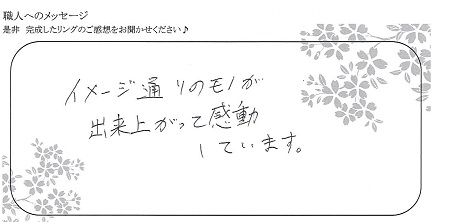 職人へのメッセージ
是非 完成したリングのご感想をお聞かせください♪
イメージ通りのモノが
出来上がって感動
しています。